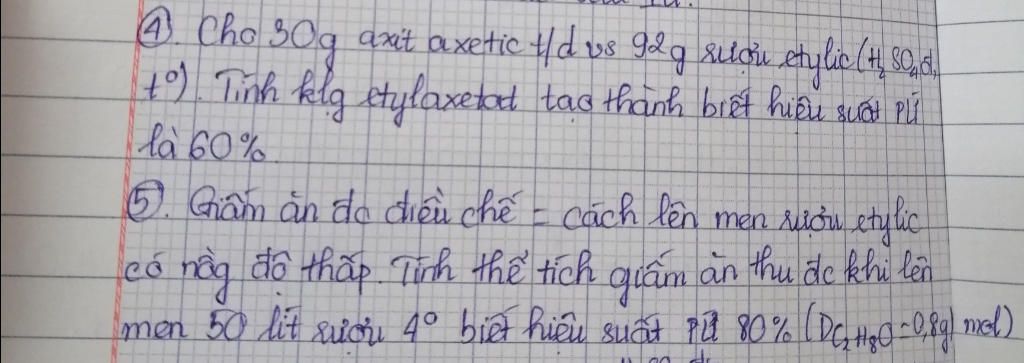 ④. Cho 30g axit axetic t/d vs 92g rượu etylic (H2SO4đ,
t°). Tính klg etylaxetat tạo thành biết hiệu suất PƯ
là 60%
⑤. Giấm ăn đc điều chế = cách lên men rượu etylic
có nồng độ thấp. Tính thể tích giấm ăn thu đc khi lên
men 50 lít rượu 4° biết hiệu suất PƯ 80% (DC2H8O = 0,8g/mol)